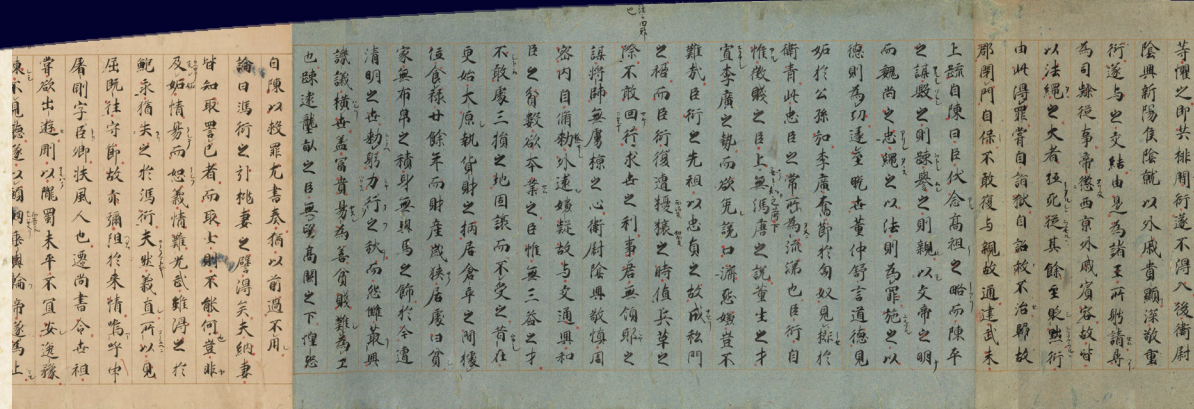 等懼之即共排間衍遂不得入後衛尉
陰興新陽侯陰就以外戚貴顯深敬重
衍遂与之交結由是為諸王所聘請尋
為司隸從事帝懲西京外戚賓客故皆
以法繩之大者抵死徙其餘至貶黜衍
由此得罪嘗自詣獄有詔赦不治歸故
郡閉門自保不敢復与親故通建武末
上疏自陳曰臣伏念高祖之略而陳平
之謀毀之則疎譽之則親以文帝之明
而魏尚之忠繩之以法則為罪施之以
德則為功逮至晚世董仲舒言道德見
妬於公孫弘李廣奮節於匈奴見排於
衛青此忠臣之常所為流涕也臣衍自
惟微賤之臣上無馮唐之說董生之才
寡李廣之勢而欲免讒口濟怨嫌豈不
難哉臣衍之先祖以忠貞之故成私門
之禍而臣衍復遭擾攘之時值兵革之
際不敢回行求世之利事君無傾邪之
謀將帥無虜掠之心衛尉陰興敬慎周
密內自脩勅外遠嫌疑故与交通興知
臣之貧數欲本業之臣惟無三益之才
不敢處三損之地固讓而不受之昔在
更始大原執貨財之柄居倉卒之間據
位食祿廿餘年而財産歳狹居處日貧
家無布帛之積身無輿馬之飾於今遭
清明之世勅躬力行之秋而怨讎叢興
譏議橫世蓋富貴易為善貧賤難為工
也疎遠壟畝之臣無望高闕之下惶恐
自陳以救罪尤書奏猶以前過不用
論曰馮衍之引挑妻之譬得矣夫納妻
皆知取詈己者而取士則不能何豈非
反妬情易而恕義情難光武雖得之於
鮑永猶失之於馮衍夫然義直所以見
屈既往守節故亦彌阻於來情嗚呼申
屠剛字臣卿扶風人也遷尚書令世祖
嘗欲出遊剛以隴蜀未平不宜安逸豫
諫不見聽遂以頭軔乗輿輪帝遂為止